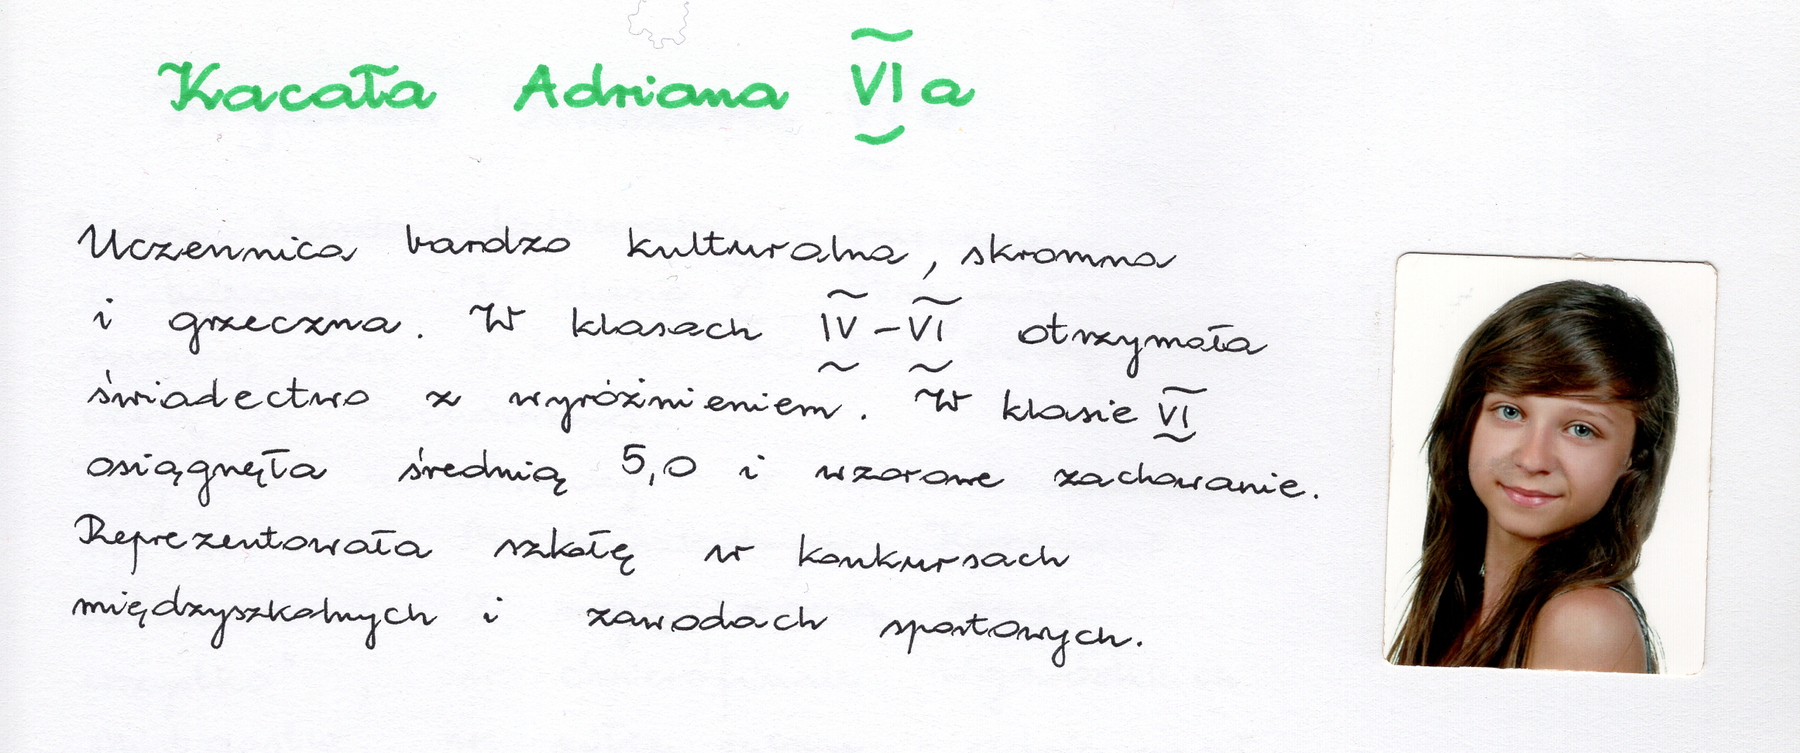 Kacała Adriana VI a
Uczennica bardzo kulturalna, skromna
i grzeczna. W klasach IV-VI otrzymała
świadectwo z wyróżnieniem. W klasie VI
osiągnęła średnią 5,0 i wzorowe zachowanie.
Reprezentowała szkołę w konkursach
międzyszkolnych i zawodach sportowych.